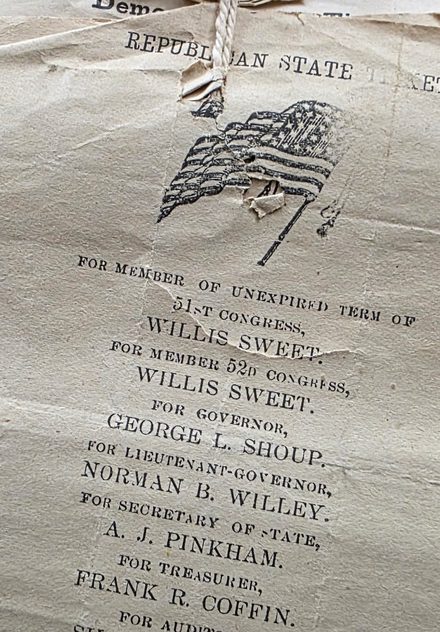 REPUBLICAN STATE TICKET
FOR MEMBER OF UNEXPIRED TERM OF
51ST CONGRESS,
WILLIS SWEET.
FOR MEMBER 52D CONGRESS,
WILLIS SWEET.
FOR GOVERNOR,
GEORGE L. SHOUP.
FOR LIEUTENANT-GOVERNOR,
NORMAN B. WILLEY.
FOR SECRETARY OF STATE,
A. J. PINKHAM.
FOR TREASURER,
FRANK R. COFFIN.
FOR AUDITO